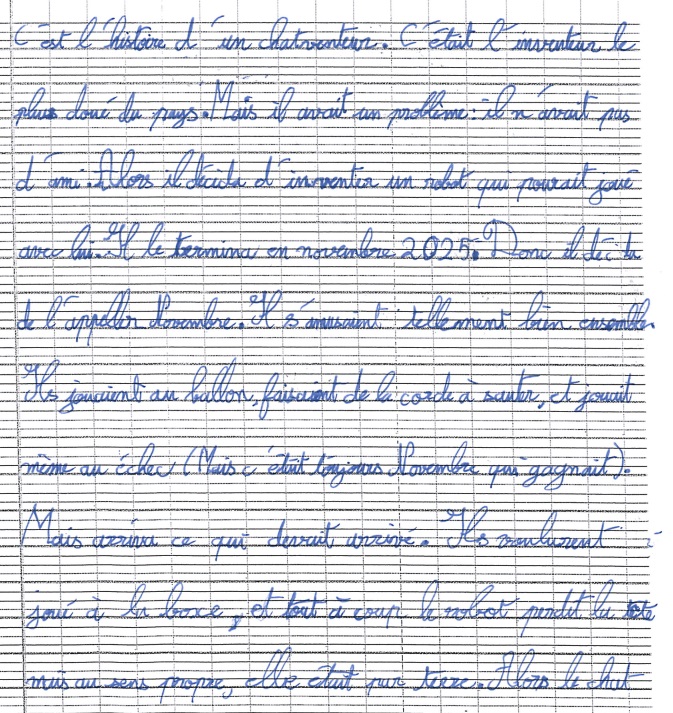 C'est l'histoire d'un chatventeur. C'était l'inventeur le
plus doué du pays. Mais il avait un problème : il n'avait pas
d'ami. Alors il décida d'inventer un robot qui pourait joué
avec lui. Il le termina en novembre 2025. Donc il décida
de l'appeller Novembre. Il s'amusaient tellement bien ensemble.
Ils jouaient au ballon, faisaient de la corde à sauter, et jouait
même au échec (Mais c'était toujours Novembre qui gagnait).
Mais arriva ce qui devait arrivé. Ils voulurent
joué à la boxe, et tout à coup le robot perdit la tête
mais au sens propre, elle était par terre. Alors le chat